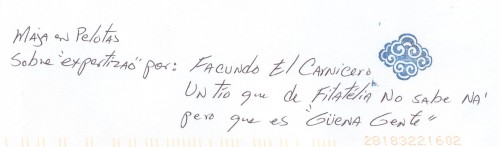 Maja en Pelotas
Sobre "expertizao" por: FACUNDO El CARNICERO
UN TIO que de FilATELIA NO SABE NA'
pero que es "GÜENA GENTE"
28183221602